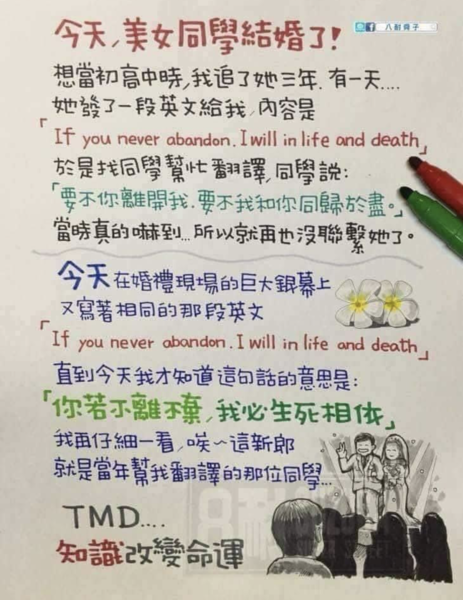 八耐舜子
今天，美女同學結婚了！
想當初高中時，我追了她三年．有一天....
她發了一段英文給我，內容是
「If you never abandon. I will in life and death」
於是找同學幫忙翻譯，同學說：
「要不你離開我．要不我和你同歸於盡。」
當時真的嚇到...所以就再也沒聯繫她了。
今天在婚禮現場的巨大銀幕上
又寫著相同的那段英文
「If you never abandon. I will in life and death」
直到今天我才知道這句話的意思是：
「你若不離不棄，我必生死相依」
我再仔細一看，唉～這新郎
就是當年幫我翻譯的那位同學...
TMD....
知識改變命運